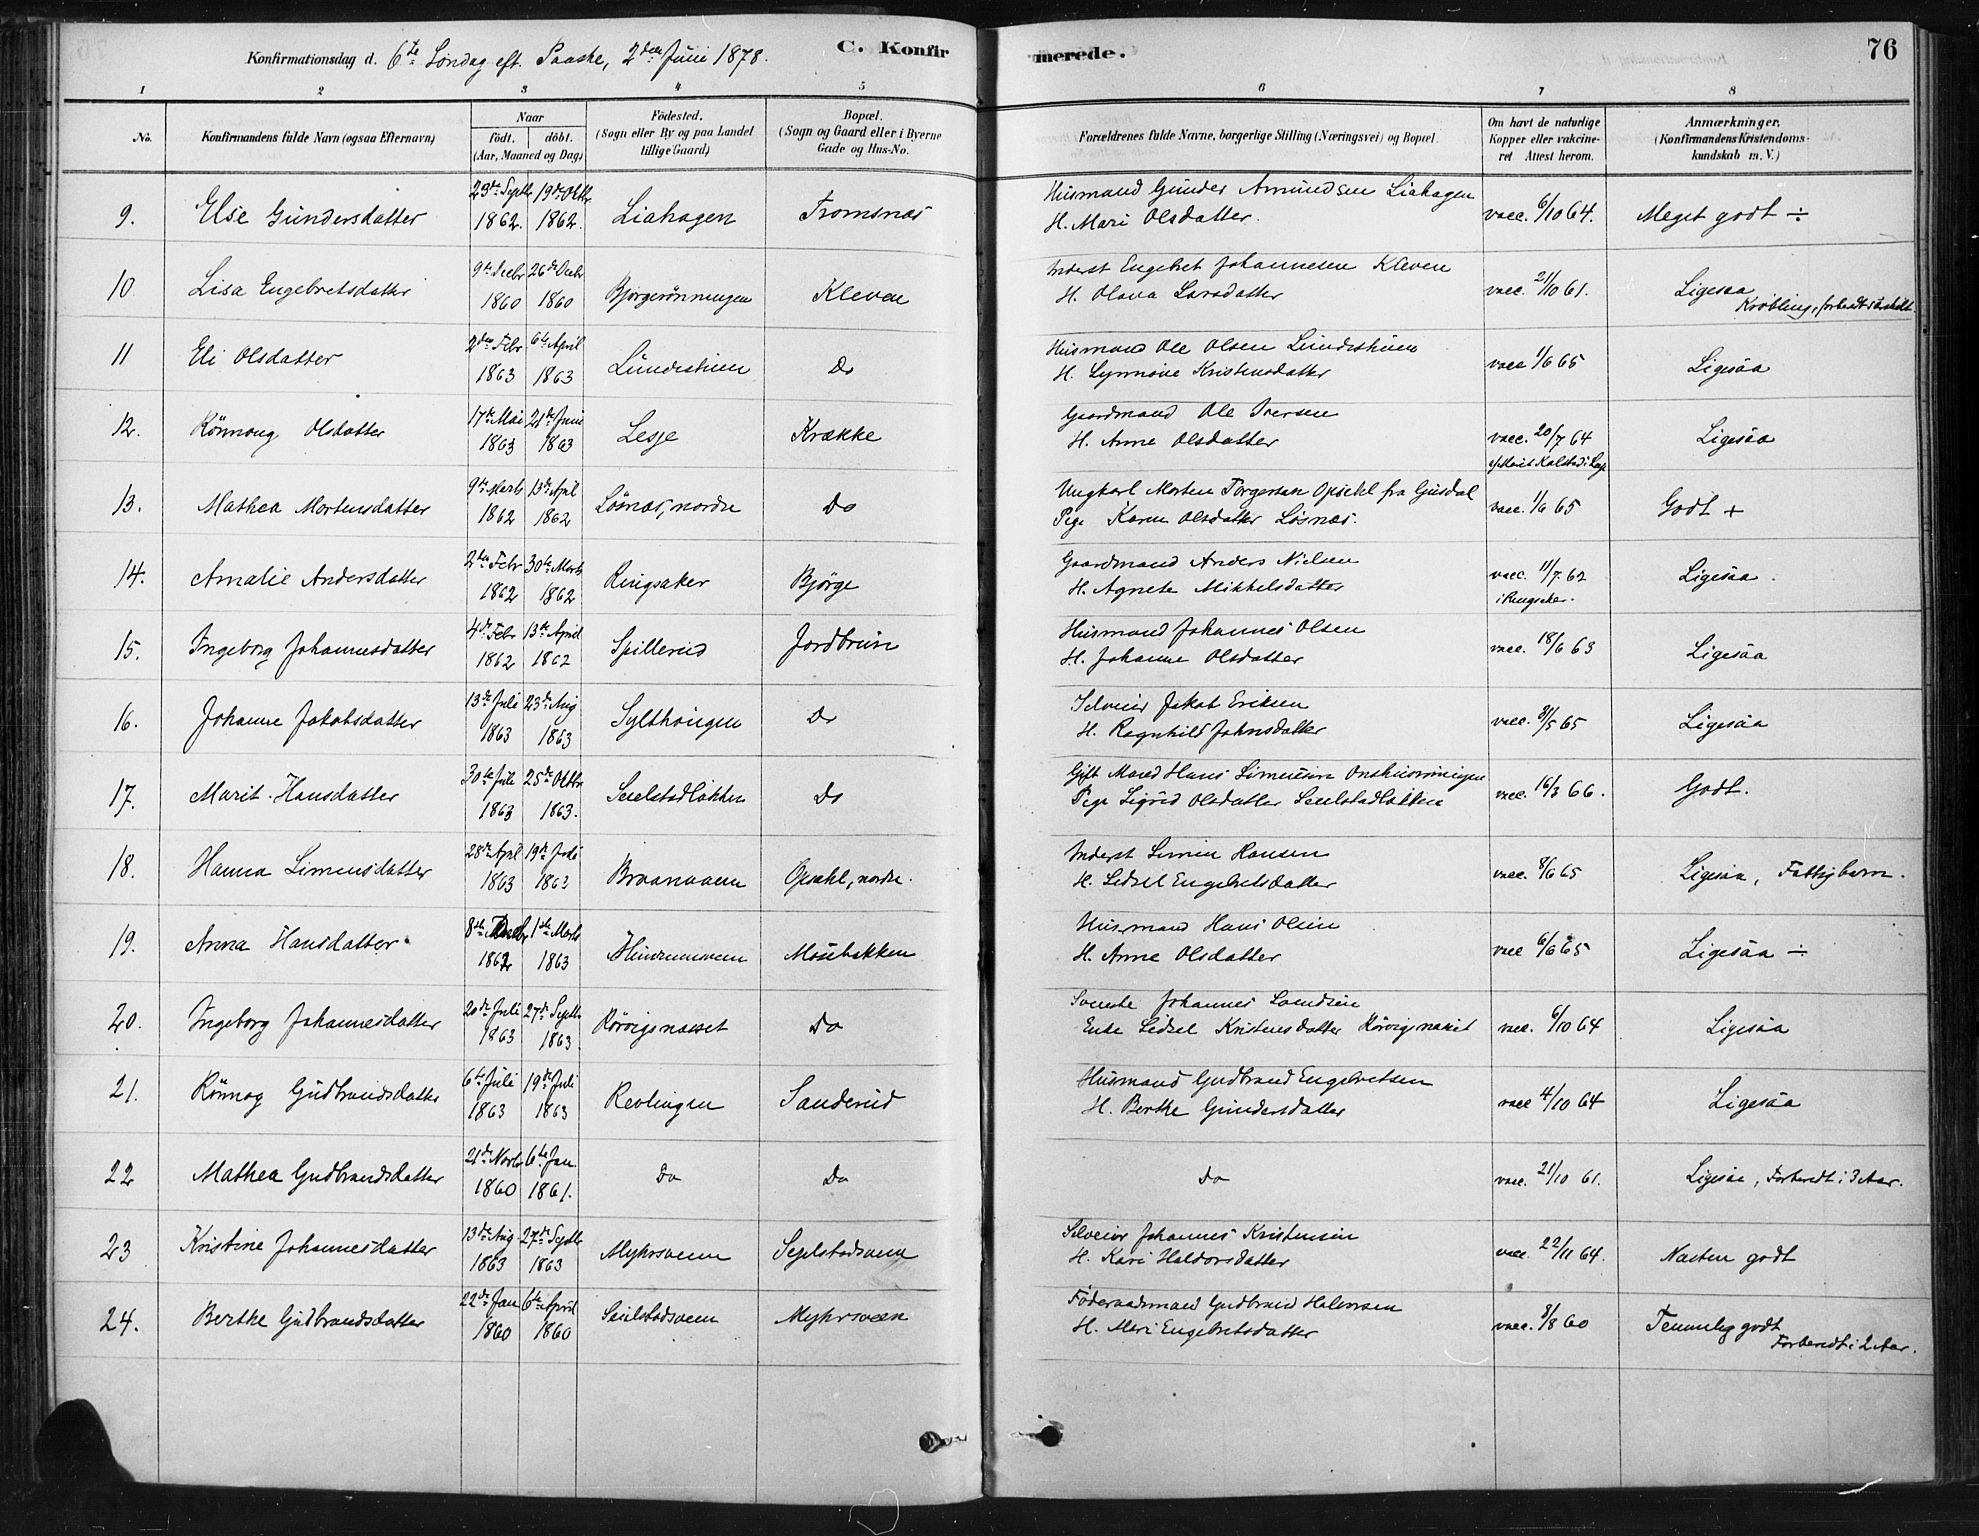 Konfirmationsdag d. 6te Söndag eft. Paaske, 2den Juni 1878.
C. Konfirmerede.
76
1 2 3 4 5 6 7 8
No.
Konfirmandens fulde Navn (ogsaa Efternavn)
Naar
födt. döbt.
(Aar, Maaned og Dag)
Födested.
(Sogn eller By og paa Landet
tillige Gaard)
Bopæl.
(Sogn og Gaard eller i Byerne
Gade og Hus-No.
Forældrenes fulde Navne, borgerlige Stilling (Næringsvei) og Bopæl.
Om havt de naturlige
Kopper eller vakcine-
ret Attest herom.
Anmærkninger.
(Konfirmandens Kristendoms-
kundskab m. V.)
9. Else Gundersdatter 29de Septbr 1862. 19de Oktbr 1862. Liahagen Tromsnæs Husmand Gunder Amundsen Liahagen
H. Mari Olsdatter. vacc. 6/10 64. Meget godt ÷
10 Lisa Engebretsdatter 9de Decbr 1860 26de Decbr 1860 Bjørgerønningen Kleven Inderst Engebret Johannesen Kleven
H. Olava Larsdatter vacc. 21/10 61. Ligesaa
Krøbling, forberedt
11 Eli Olsdatter 2den Febr 1863 6te April 1863 Lundestuen Do Husmand Ole Olsen Lundestuen
H. Synnøve Kristensdatter vacc 1/6 65 Ligesaa
12. Rönnoug Olsdatter 17de Mai 1863 21de Juni 1863 Lesje Krække Gaardmand Ole Iversen
H. Anne Olsdatter vacc. 20/7 64 Ligesaa
13. Mathea Mortensdatter 9de Marts 1862 13de April 1862 Lösnæs, nordre Do Ungkarl Morten Torgersen Opsehl fra Gusdal
Pige Karen Olsdatter Løsnæs. vacc. 1/6 65 Godt +
14. Amalie Andersdatter 2den Febr 1862 30te Marts 1862 Ringsaker Björge Gaardmand Anders Nielsen
H. Agnete Mikkelsdatter vacc. 11/7 62
i Ringsaker. Ligesaa.
15. Ingeborg Johannesdatter 4de Febr 1862 13de April 1862 Spillerud Jordbrun Husmand Johannes Olsen
H. Johanne Olsdatter vacc. 18/6 63 Ligesaa
16. Johanne Jakobsdatter 13de Juli 1863 23de Aug 1863 Sylthaugen Do Selveier Jakob Eriksen
H. Ragnhild Johnsdatter vacc. 8/5 65 Ligesaa
17. Marit Hansdatter 30te Juli 1863 25de Oktbr 1863. Seielstadløkken Do Gift Mand Hans Simensen
Pige Sigrid Olsdatter Seielstadløkken vacc. 16/3 66. Godt.
18. Hanna Simensdatter 28de April 1863 19de Juli 1863 Braanaaen Opsahl, nordre. Inderst Simen Hansen
H. Sidsel Engebretsdatter vacc. 8/6 65 Ligesaa, Fattigbarn.
19. Anna Hansdatter 8de Decbr 1862 1ste Marts 1863 Mosebakken Husmand Hans Olsen
H. Anne Olsdatter vacc 6/6 65 Ligesaa ÷
20. Ingeborg Johannesdatter 20de Juli 1863 27de Septbr 1863 Rörvignæsset Do Johannes Svendsen
Enke Sidsel Kristensdatter Rörvignæsset vacc. 6/10 64 Ligesaa
21. Rönnog Gudbrandsdatter 6te Juli 1863 19de Juli 1863 Revlingen Sanderud Husmand Gudbrand Engebretsen
H. Berthe Gundersdatter vacc 4/10 64 Ligesaa
22 Mathea Gudbrandsdatter 21de Novbr 1860 6te Jan 1861. Do Do Do vacc. 21/10 61. Ligesaa, Forberedt i 3 Aar.
23 Kristine Johannesdatter 13de Aug 1863 27de Septbr 1863 Myhrsveen Segelstadsveen Selveier Johannes Kristensen
H. Kari Haldorsdatter vacc. 22/11 64. Næsten godt
24. Berthe Gudbrandsdatter 22de Jan 1860 6te April 1860 Seielstadsveen Myhrsveen Föderaadsmand Gudbrand Halvorsen
H. Mari Engebretsdatter vacc. 8/8 60 Temmelig godt
Forberedt i 2 Aar.